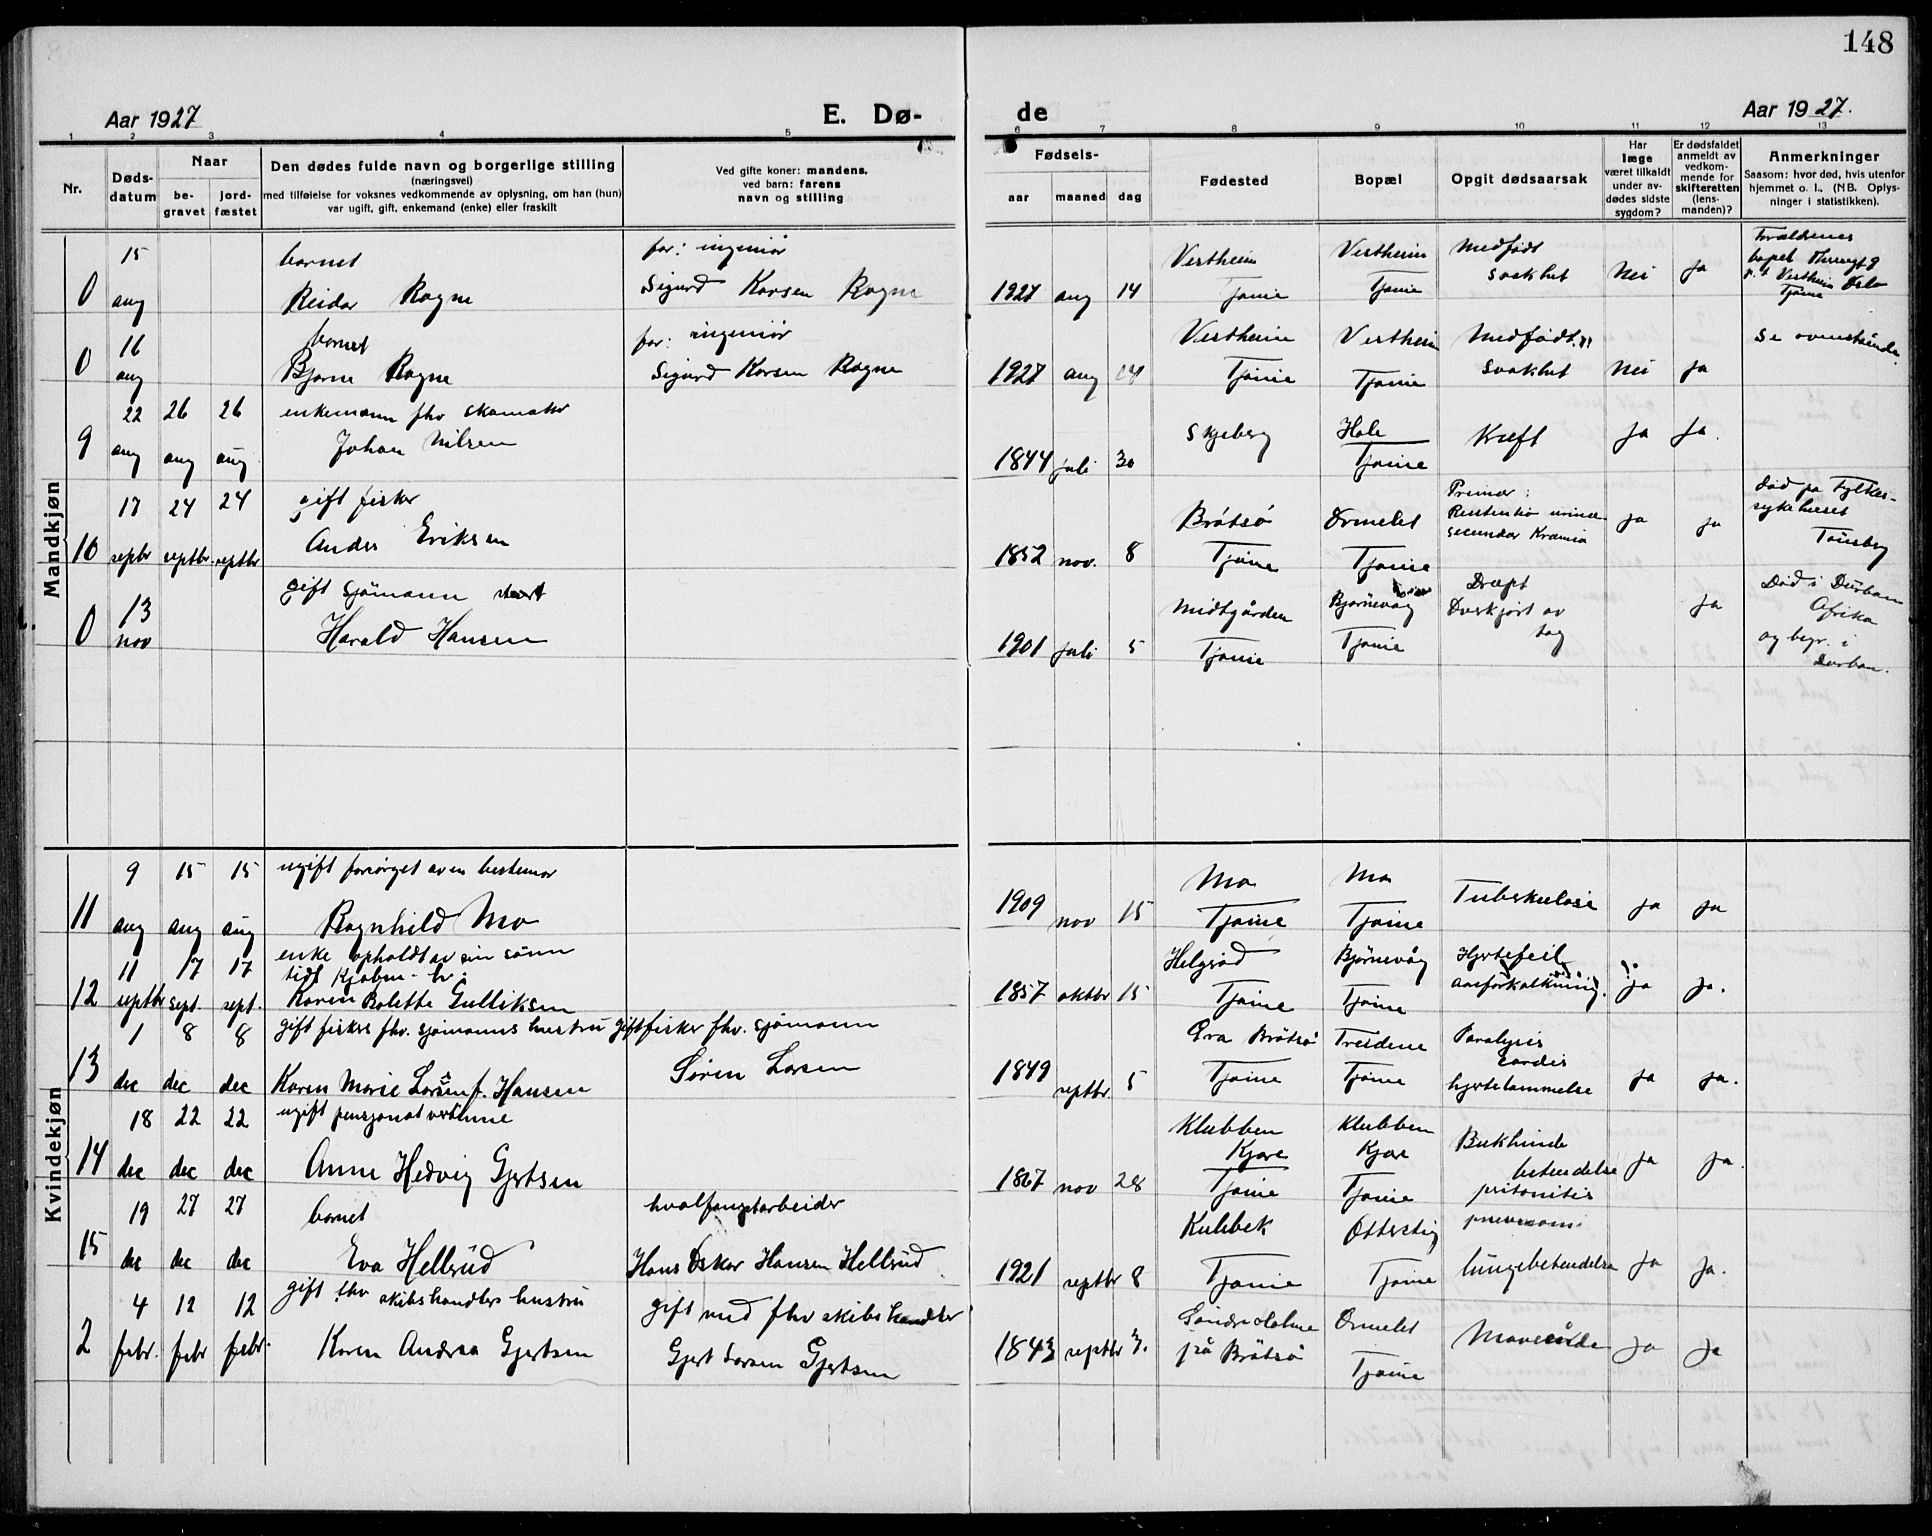 148
Aar 1927
E. Dø-
de
Aar 1927.
1 2 3 4 5 6 7 8 9 10 11 12 13
Nr.
Døds-
datum
Naar
be-
gravet
jord-
fæstet
Den dødes fulde navn og borgerlige stilling
(næringsvei)
med tilføielse for voksnes vedkommende av oplysning, om han (hun)
var ugift, gift, enkemand (enke) eller fraskilt
Ved gifte koner: mandens,
ved barn: farens
navn og stilling
Fødsels-
aar maaned dag
Fødested
Bopæl
Opgit dødsaarsak
Har
læge
været tilkaldt
under av-
dødes sidste
sygdom?
Er dødsfaldet
anmeldt av
vedkom-
mende for
skifteretten
(lens-
manden)?
Anmerkninger
Saasom: hvor død, hvis utenfor
hjemmet o. l., (NB. Oplys-
ninger i statistikken).
Mandkjøn
15 barnet far: ingeniør Vestheim Vestheim Medfødt Forældrenes
0 aug Reidar Rogne Sigurd Korsen Rogne 1927 aug 14 Tjøme Tjøme svakhet Nei Ja
Vestheim Oslo
Tjøme
16 barnet far: ingeniør Vestheim Vestheim Medfødt se ovenstående
0 aug Bjarne Rogne Sigurd Korsen Rogne 1927 aug 14 Tjøme Tjøme svakhet Nei Ja
22 26 26 enkemann fhv skomaker Skjeberg Hole Kreft Ja Ja.
9 aug aug aug Johan Nilsen 1844 juli 30 Tjøme
17 24 24 gift fisker Brøtsø Ormelet Primær: Død på Fylkes-
sykehuset
10 septbr septbr. septbr Anders Eriksen 1852 nov. 8 Tjøme Tjøme Retentio urinae ja ja Tønsberg
secundær
13 gift sjømann Midtgården Bjørnevåg Dræpt Ja Død i Durban
Afrika
0 nov Harald Hansen 1901 juli 5 Tjøme Tjøme Overkjørt av
tog og begr. i
Durban.
Kvindekjøn
9 15 15 ugift forsørget av en bestemor Mo Mo Tuberkulose ja ja
11 aug aug aug Ragnhild Mo 1909 nov 15 Tjøme Tjøme
11 17 17 enke opholdt av sin sønn Helgerød Bjørnevåg Hjertefeil
12 septbr sept. sept. Karen Bolette Gulliksen 1857 oktbr 15 Tjøme Tjøme aareforkalkning. ja ja.
1 8 8 gift fisker fhv. sjømanns hustru gift fisker fhv. sjømann Brøtsø Treidene Paralysis
cordis
13 dec dec dec Karen Marie Larsen f. Hansen Søren Larsen 1849 septbr. 5 Tjøme Tjøme hjertelammelse ja ja.
18 22 22 ugift pensjonat vertinne Klubben Klubben Bukhinde
14 dec dec dec Anne Hedvig Gjertsen 1867 nov 28 Kjøre Kjøre betendelse ja ja.
Tjøme Tjøme pritonitis
19 27 27 barnet hvalfangstarbeider Kulbek Otterstig
15 dec dec dec Eva Hellerud Hans Oskar Hansen Hellerud 1921 septbr 8 Tjøme Tjøme lungebetendelse ja ja.
4 12 12 gift fhv skibshandlers hustru gift med fhv skibshandler Søndre Holme Ormelet
2 febr. febr febr. Karen Andrea Gjertsen Gjert Larsen Gjertsen 1843 septbr 3. på Brøtsø Tjøme Ja Ja